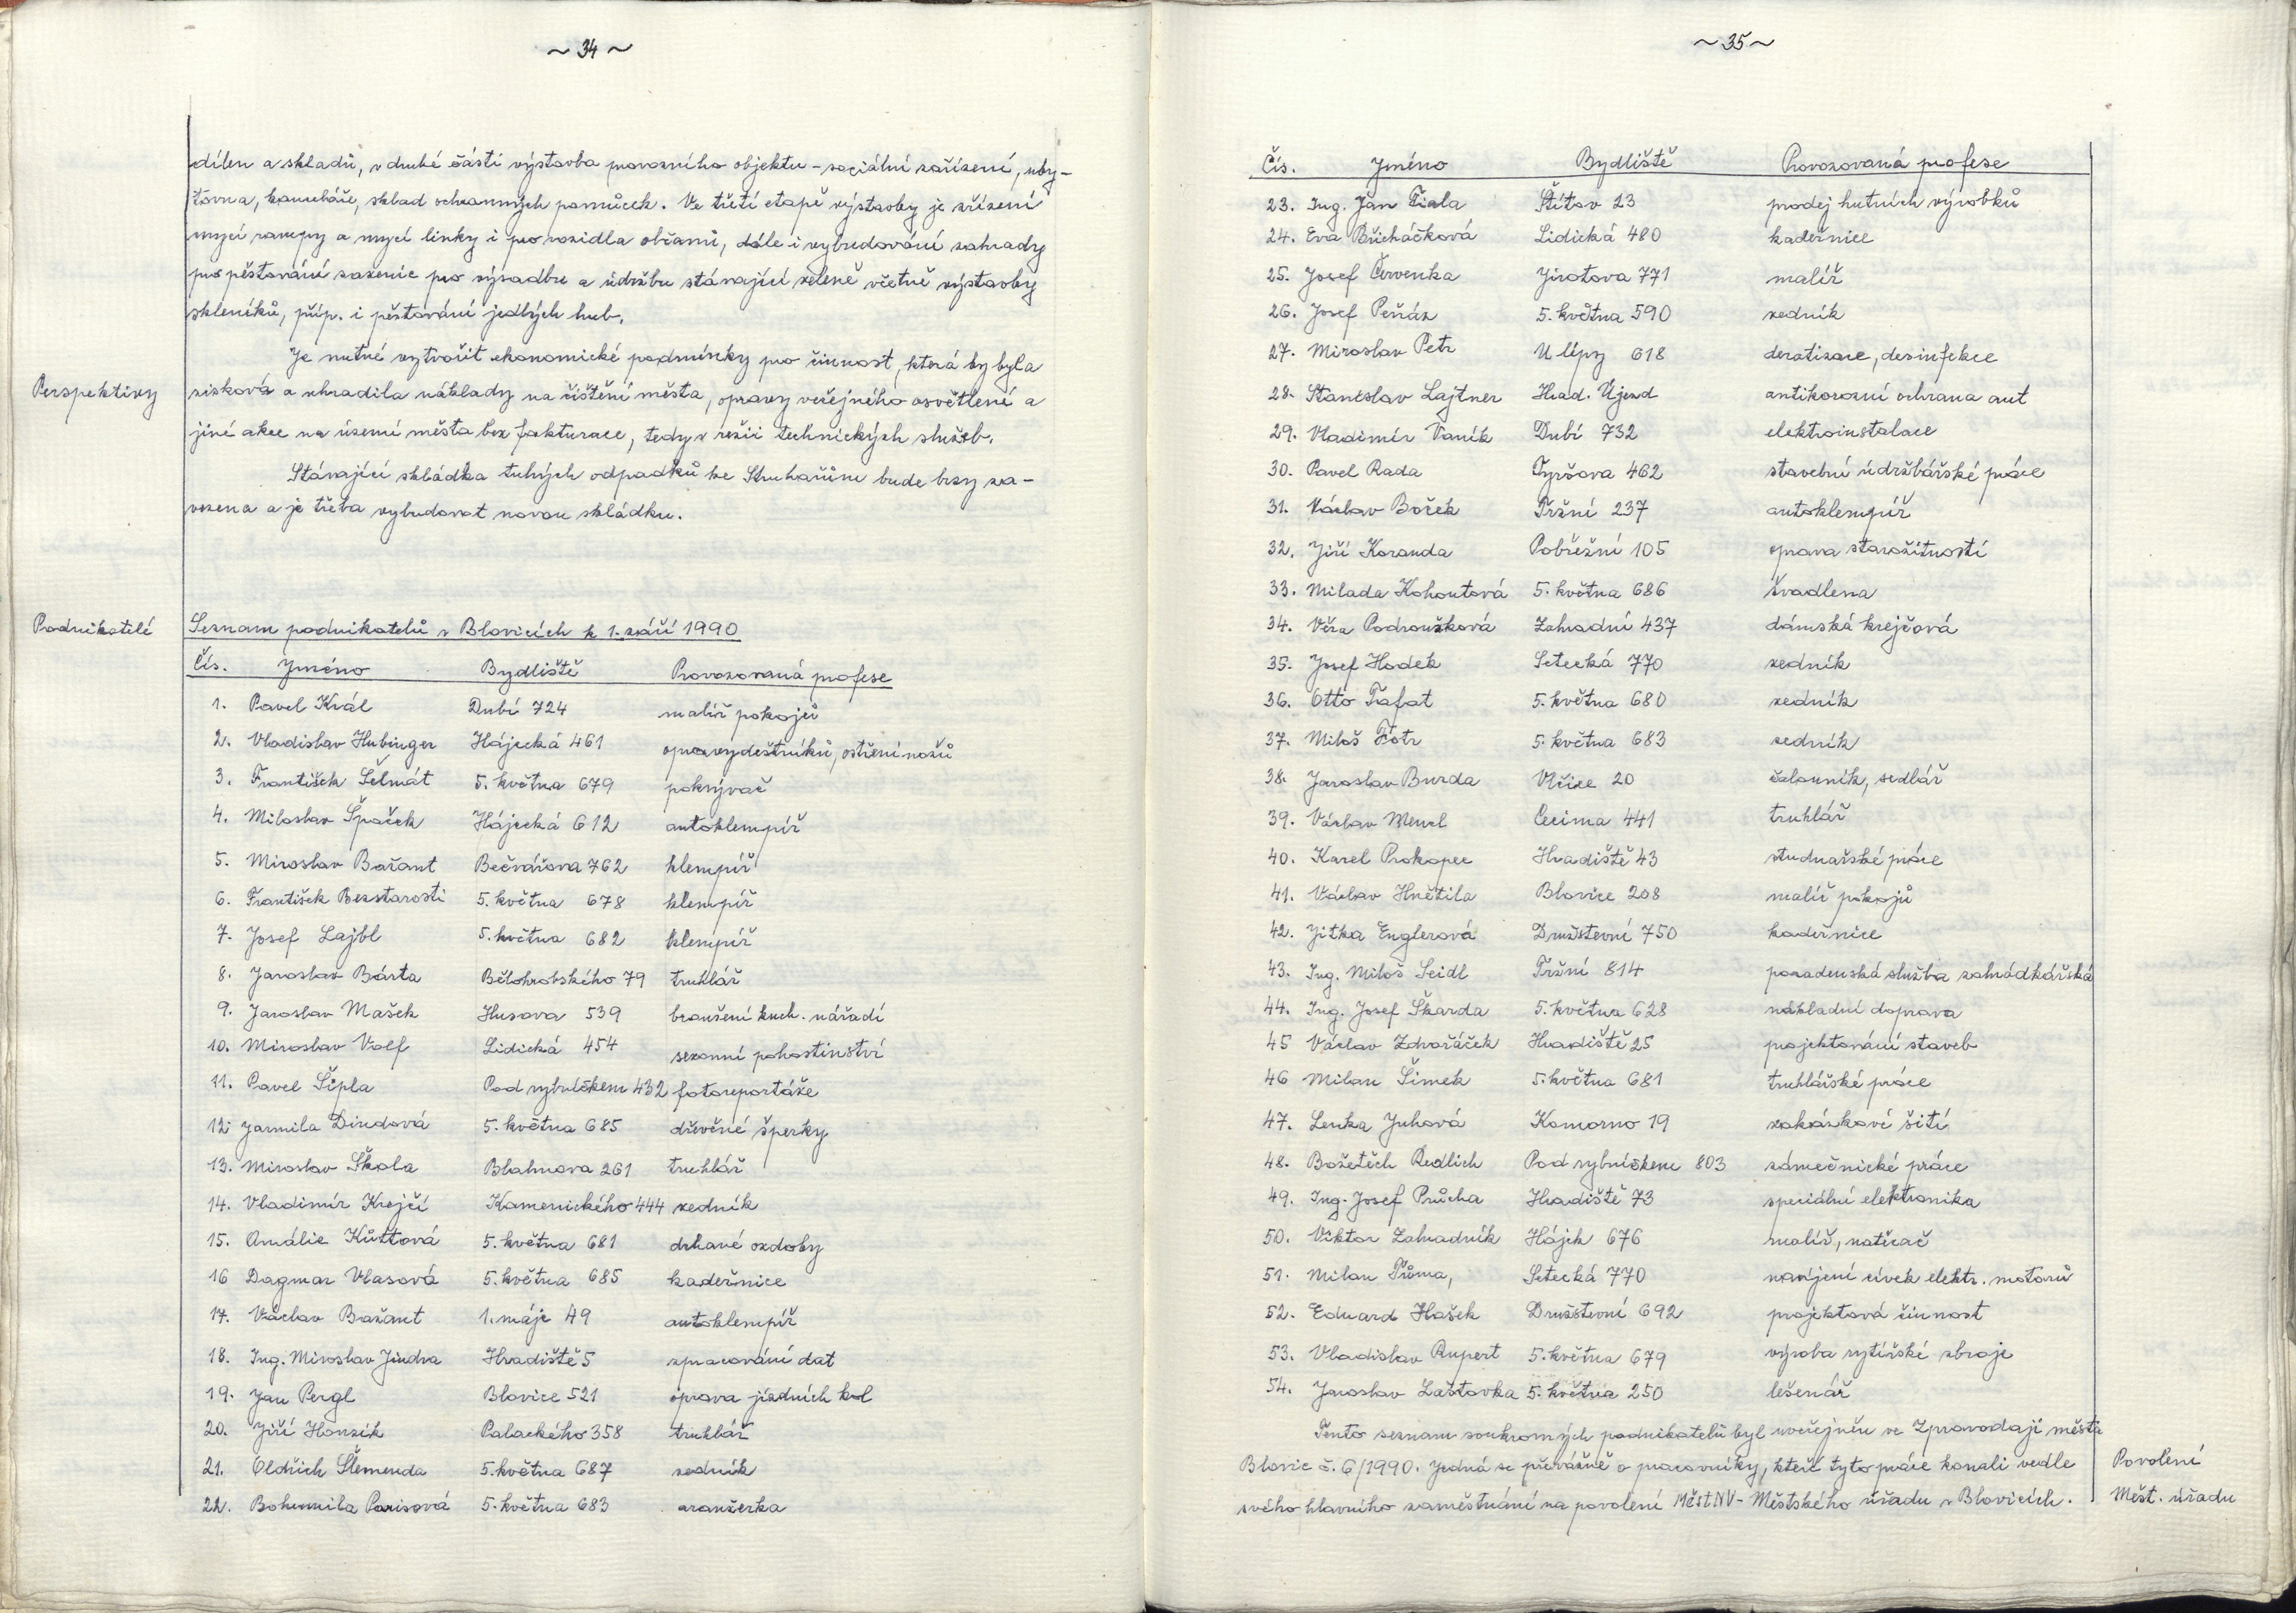 ~ 34 ~
dílen a skladů, v druhé části výstavba provozního objektu - sociální zařízení, uby-
tovna, kanceláře, sklad ochranných pomůcek. Ve třetí etapě výstavby je zřízení
mycí rampy a mycí linky i pro vozidla občanů, dále i vybudování zahrady
pro pěstování sazenic pro výsadbu a údržbu stávající zeleně včetně výstavby
skleníků, příp. i pěstování jedlých hub.
Je nutné vytvořit ekonomické podmínky pro činnost, která by byla
Perspektivy
zisková a uhradila náklady na čištění města, opravy veřejného osvětlení a
jiné akce na území města bez fakturace, tedy v režii technických služeb.
Stávající skládka tuhých odpadků ke Struhařům bude brzy za-
vezena a je třeba vybudovat novou skládku.
Podnikatelé
Seznam podnikatelů v Blovicích k 1. září 1990
Čís. Jméno Bydliště Provozovaná profese
1. Pavel Král Dubí 724 malíř pokojů
2. Vladislav Hubinger Hájecká 461 opravy deštníků, ostření nožů
3. František Šelmát 5. května 679 pokrývač
4. Miloslav Špaček Hájecká 612 autoklempíř
5. Miroslav Bažant Bečvářova 762 klempíř
6. František Bezstarosti 5. května 678 klempíř
7. Josef Lajbl 5. května 682 klempíř
8. Jaroslav Bárta Bělohrobského 79 truhlář
9. Jaroslav Mašek Husova 539 broušení kuch. nářadí
10. Miroslav Volf Lidická 454 sezonní pohostinství
11. Pavel Šipla Pod rybníčkem 432 fotoreportáže
12. Jarmila Dindová 5. května 685 dřevěné šperky
13. Miroslav Škola Blahnova 261 truhlář
14. Vladimír Krejčí Kamenického 444 zedník
15. Amálie Kůttová 5. května 681 drhané ozdoby
16 Dagmar Vlasová 5. května 685 kadeřnice
17. Václav Bažant 1. máje 49 autoklempíř
18. Ing. Miroslav Jindra Hradiště 5 zpracování dat
19. Jan Pergl Blovice 521 oprava jízdních kol
20. Jiří Honzík Palackého 358 truhlář
21. Oldřich Šlemenda 5. května 687 zedník
22. Bohumila Parisová 5. května 683 aranžerka
~ 35 ~
Čís. Jméno Bydliště Provozovaná profese
23. Ing. Jan Fiala Štítov 23 prodej hutních výrobků
24. Eva Břicháčková Lidická 480 kadeřnice
25. Josef Červenka Jirotova 771 malíř
26. Josef Peňáz 5. května 590 zedník
27. Miroslav Petr U lípy 618 deratizace, desinfekce
28. Stanislav Lajtner Hrad. Újezd antikorozní ochrana aut
29. Vladimír Vaník Dubí 732 elektroinstalace
30. Pavel Rada Tyršova 462 stavební údržbářské práce
31. Václav Boček Tržní 237 autoklempíř
32. Jiří Koranda Pobřežní 105 oprava starožitností
33. Milada Kohoutová 5. května 686 švadlena
34. Věra Podroužková Zahradní 437 dámská krejčová
35. Josef Hodek Setecká 770 zedník
36. Otto Trafat 5. května 680 zedník
37. Miloš Fótr 5. května 683 zedník
38. Jaroslav Burda Vlčice 20 čalouník, sedlář
39. Václav Menzl Cecima 441 truhlář
40. Karel Prokopec Hradiště 43 studnařské práce
41. Václav Hnětila Blovice 208 malíř pokojů
42. Jitka Englerová Družstevní 750 kadeřnice
43. Ing. Miloš Seidl Tržní 814 poradenská služba zahrádkářská
44. Ing. Josef Škarda 5. května 628 nákladní doprava
45 Václav Zdvořáček Hradiště 25 projektování staveb
46 Milan Šimek 5. května 681 truhlářské práce
47. Lenka Juhová Komorno 19 zakázkové šití
48. Božetěch Redlich Pod rybníčkem 803 zámečnické práce
49. Ing. Josef Průcha Hradiště 73 speciální elektronika
50. Viktor Zahradník Hájek 676 malíř, natěrač
51. Milan Tůma, Setecká 770 navíjení cívek elektr. motorů
52. Eduard Hašek Družstevní 692 projektová činnost
53. Vladislav Rupert 5. května 679 výroba rytířské zbroje
54. Jaroslav Laštovka 5. května 250 lešenář
Tento seznam soukromých podnikatelů byl uveřejněn ve Zpravodaji města
Blovic č. 6/1990. Jedná se převážně o pracovníky, kteří tyto práce konali vedle
Povolení
svého hlavního zaměstnání na povolení MěstNV - Městského úřadu v Blovicích.
Měst. úřadu